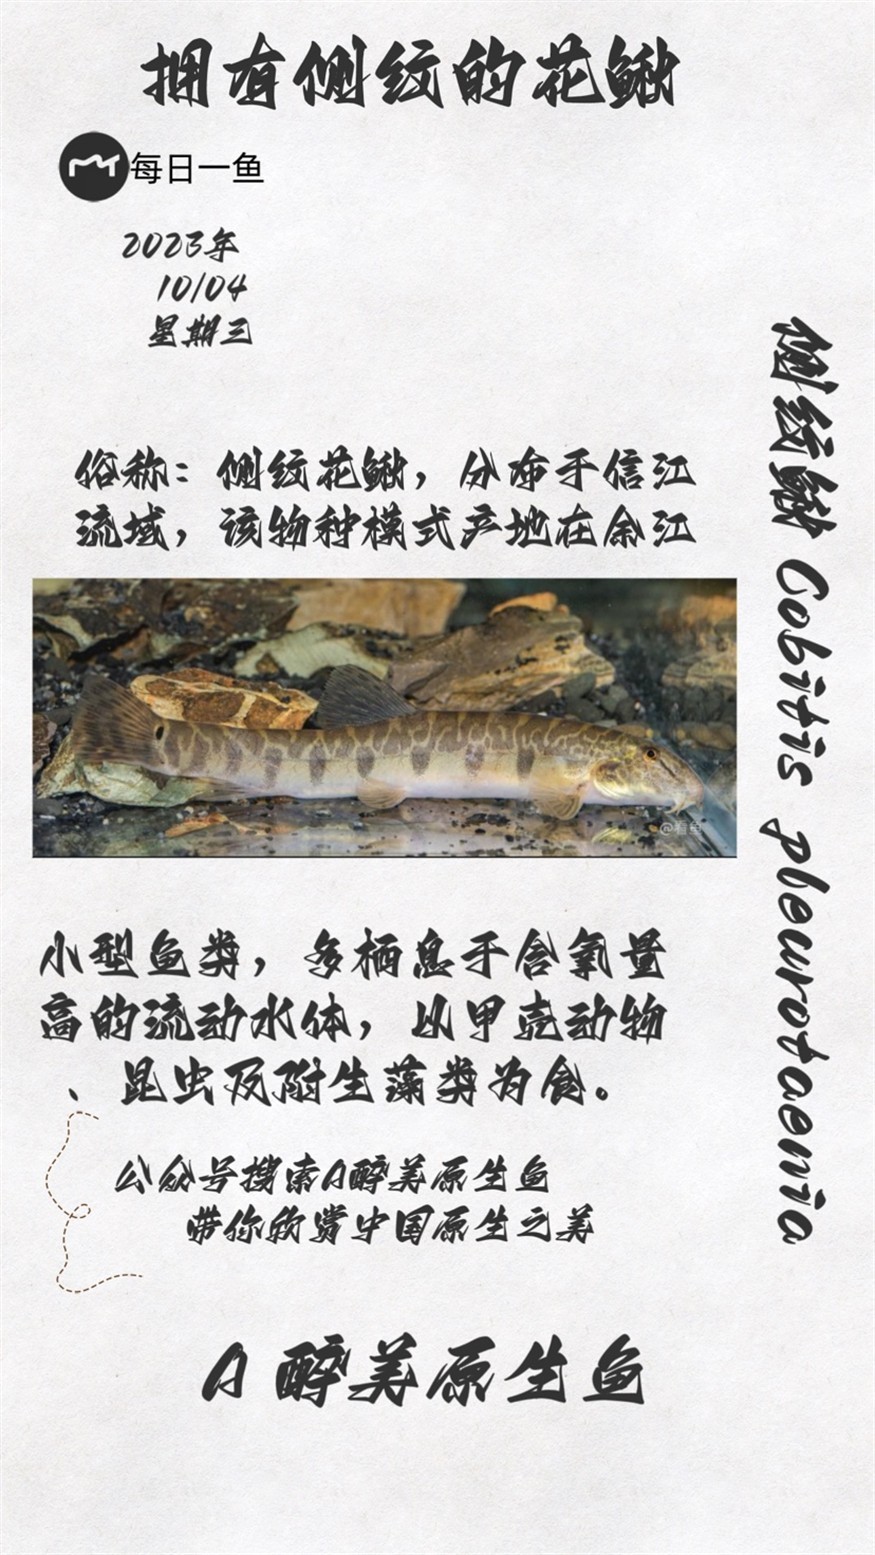 拥有侧纹的花鳅
每日一鱼
2023年
10/04
星期三
俗称：侧纹花鳅，分布于信江
流域，该物种模式产地在余江
侧纹鳅 Cobitis pleurotaenia
小型鱼类，多栖息于含氧量
高的流动水体，以甲壳动物
、昆虫及附生藻类为食。
公众号搜索A醉美原生鱼
带你欣赏中国原生之美
A 醉美原生鱼